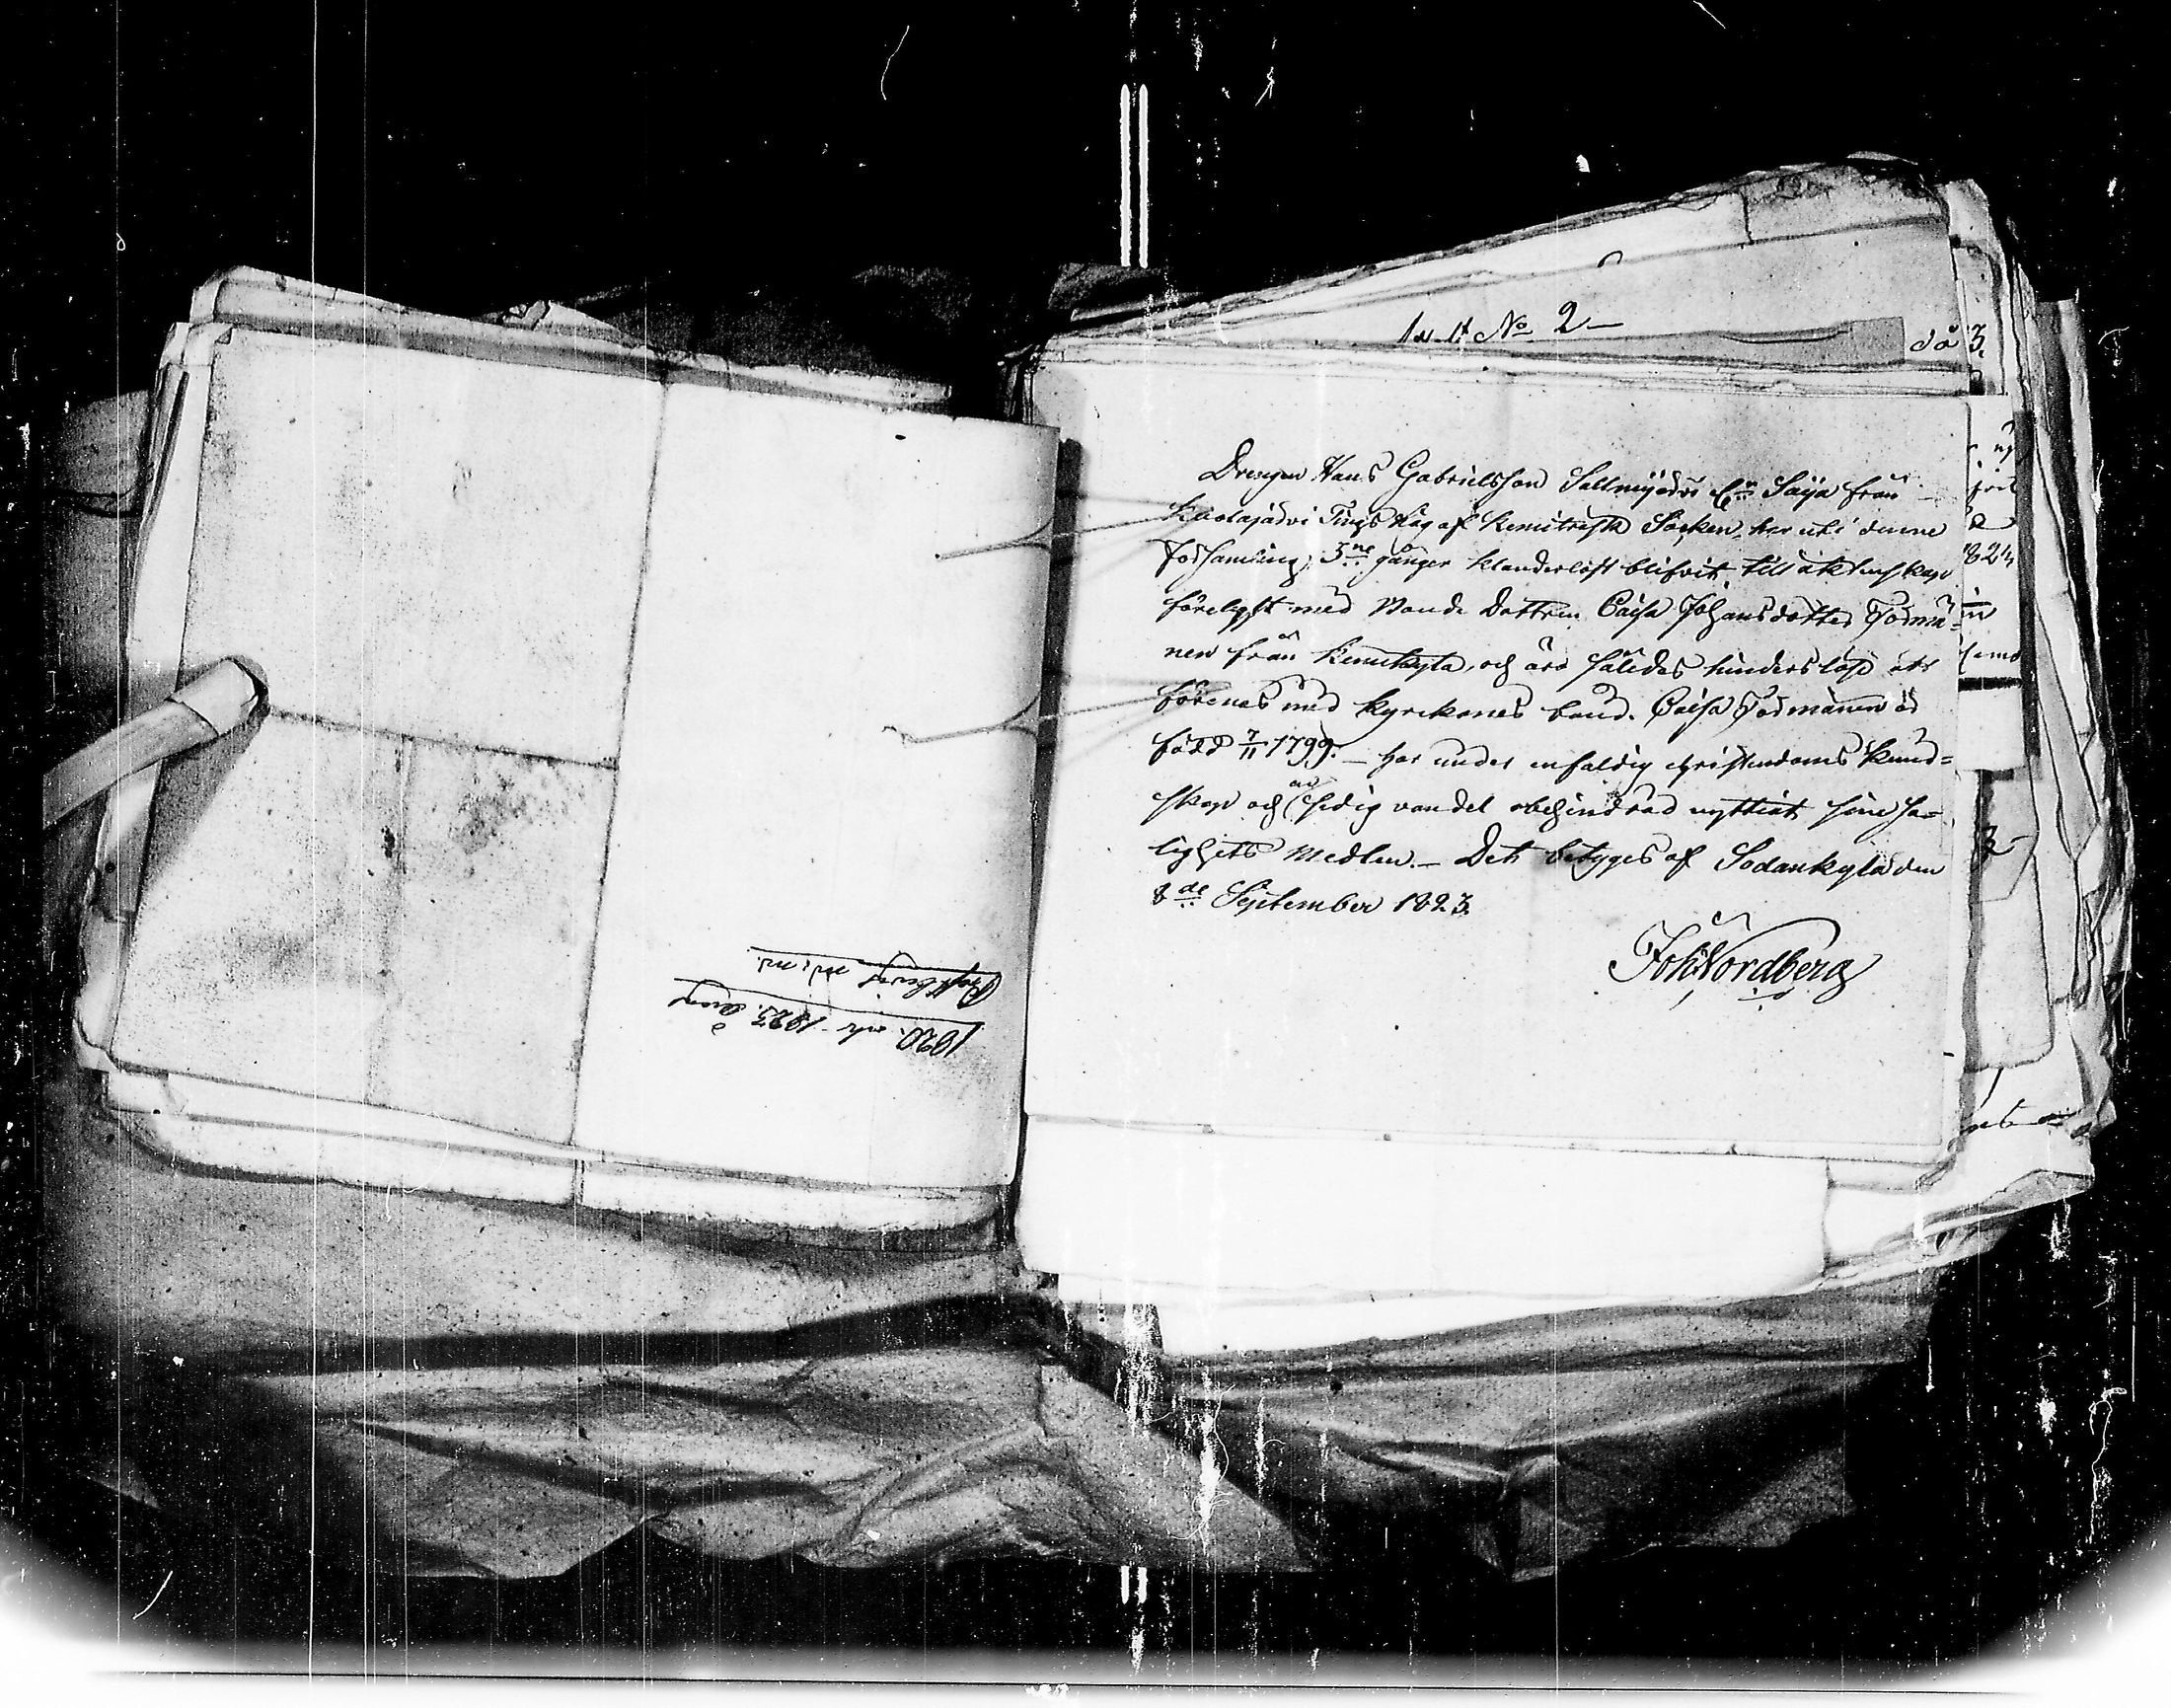 No 2
då 3.
Drengen Hans Gabrielsson Sallmijärvi Saija från
Kuolajärvi Tings Lag af Kemiträsk Socken, har uti denne
Församling 3ne gånger klanderlöst blifvit till äktenskap
förelyst med Bonde Dottren Caisa Johansdotter Tormä-
nen från Kemikylä, och äro således hinderslöse att
förenas med kyrckones band. Caisa Tormänen är
född 7/11 1799. – har under enfaldig christendoms kund-
skap och sedig vandel obehindrad nyttiat sine sa-
lighets medlen. – Det betyges af Sodankylä den
8de September 1823.
Joh. Nordberg
1820. 1823.